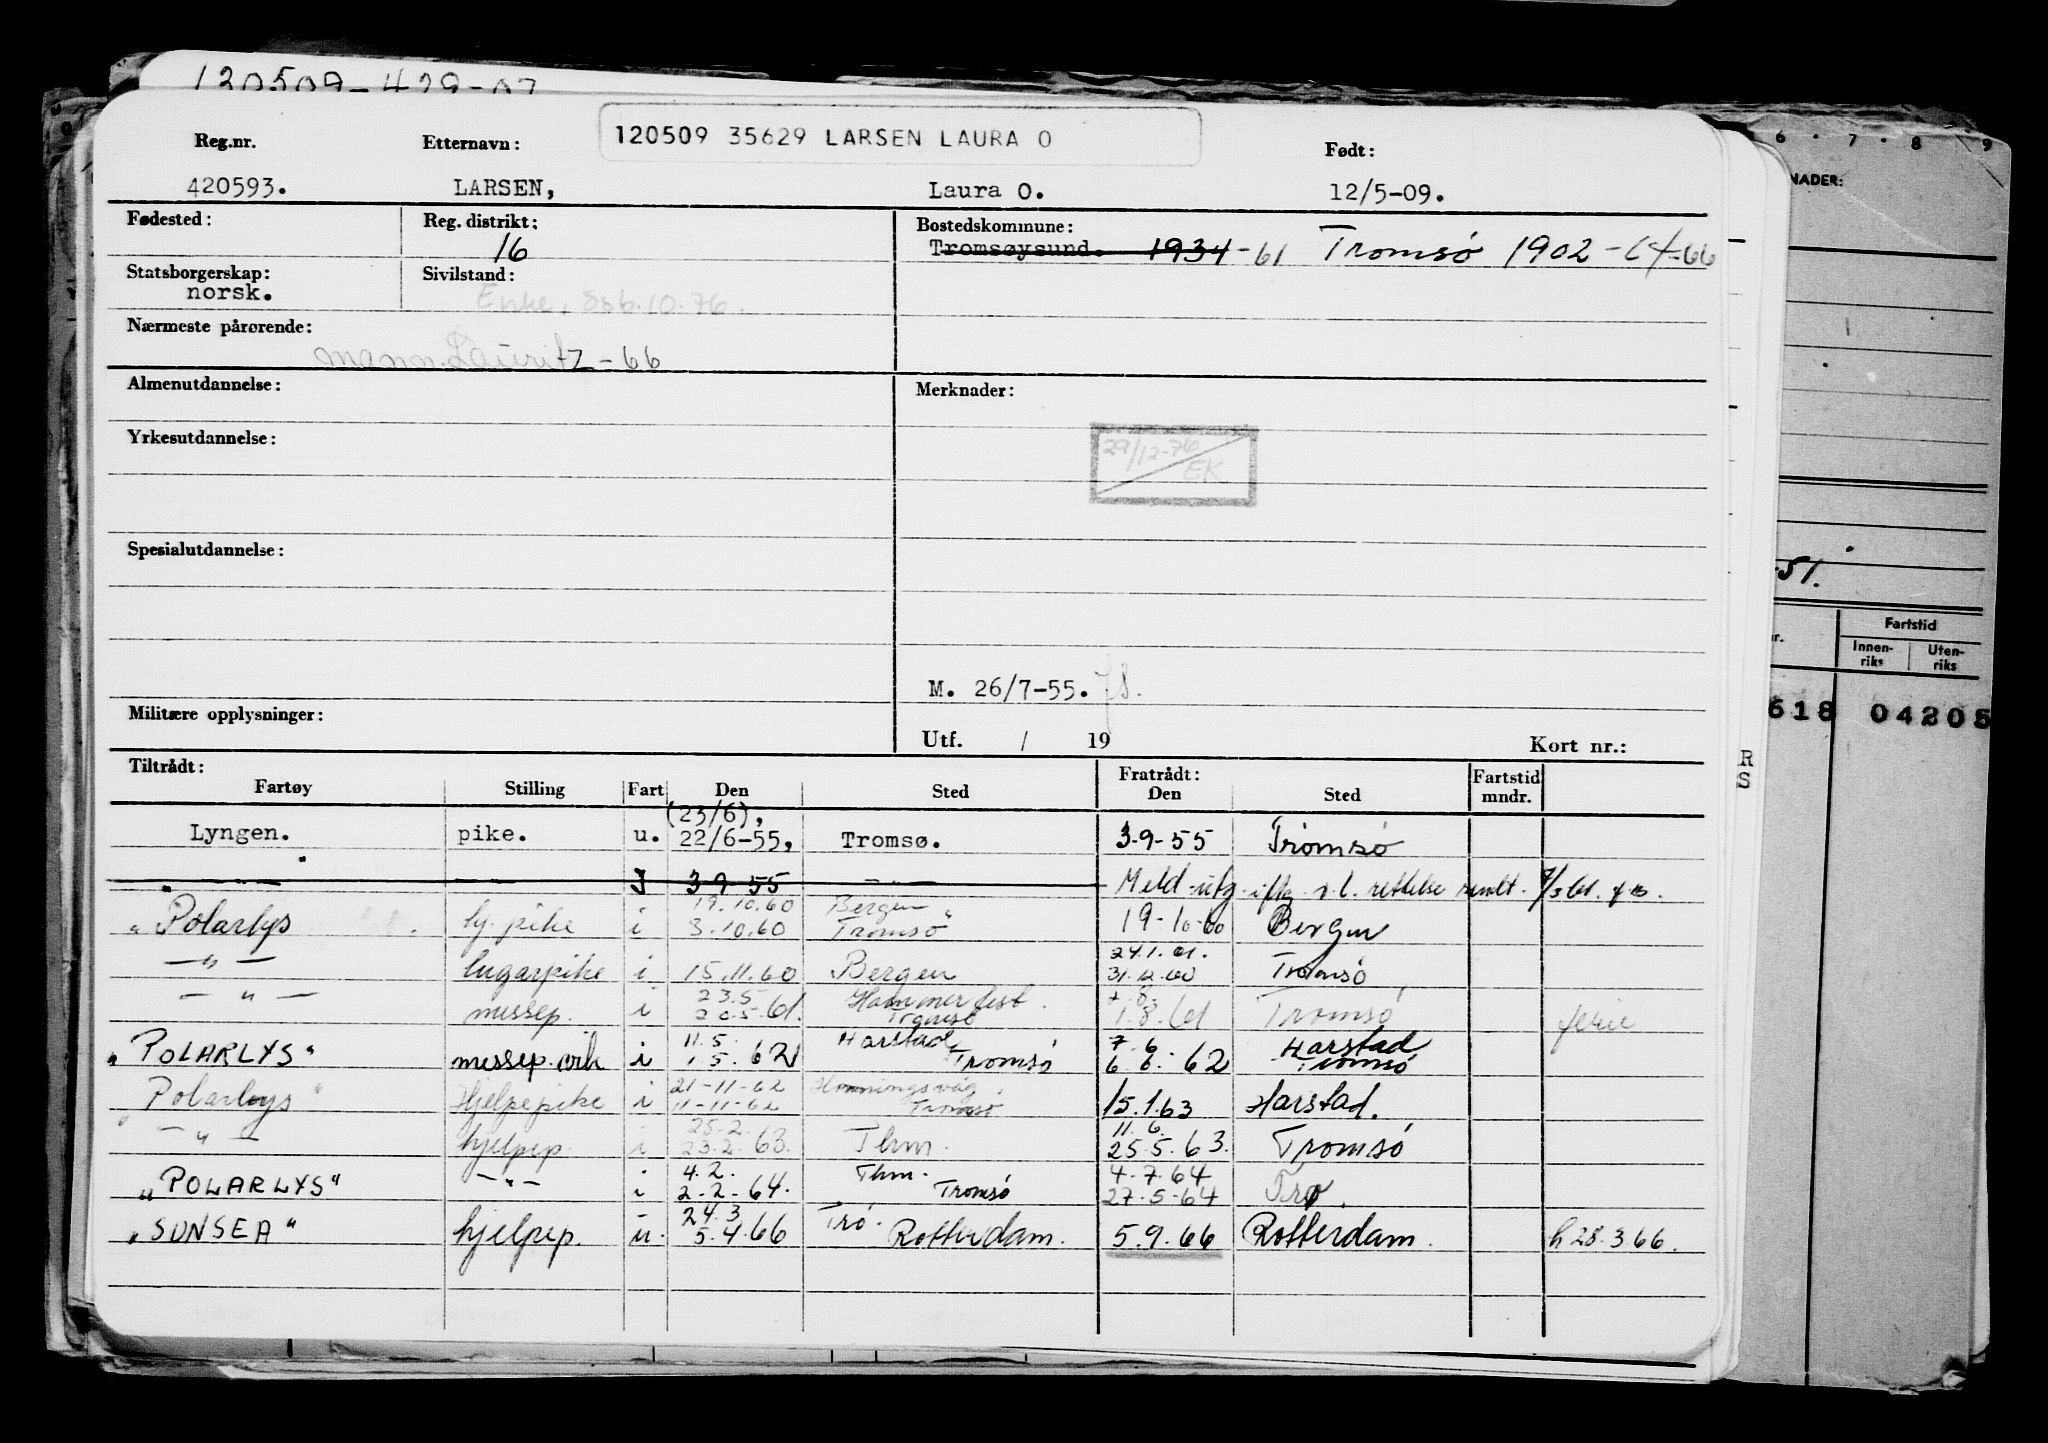 120509-429-07
120509 35629 LARSEN LAURA O
Reg.nr. Etternavn: Født:
420593. LARSEN, Laura O. 12/5-09.
Fødested: Reg. distrikt: 16 Bostedskommune:
Tromsøysund. 1934-61 Tromsø 1902-64-66
Statsborgerskap: norsk. Sivilstand: Enke, Ssb.10.76.
Nærmeste pårørende:
mann. Lauritz-66
Almenutdannelse: Merknader:
Yrkesutdannelse:
29/12-76
EK
Spesialutdannelse:
M. 26/7-55.
Militære opplysninger:
Utf. / 19 Kort nr.:
Tiltrådt: Fratrådt:
Fartøy Stilling Fart Den Sted Den Sted Fartstid mndr.
(23/6),
Lyngen. pike. u. 22/6-55, Tromsø. 3-9-55 Tromsø
— " — — I 3-9-55 — Meld- rettelse sendt.
19.10.60 Bergen
"Polarlys" hj. pike i 3.10.60 Tromsø 19-10-60 Bergen
24.1.61.
— " — lugarpike i 15.11.60 Bergen 31.12.60 Tromsø
23.5 Hammerfest. 7.8.
— " — messep. i 20.5.61. Tromsø 1.8.61 Tromsø ferie
11.5. Harstad 7.6 Harstad
"POLARLYS" messep. i 1.5.62 Tromsø 6.6.62 Tromsø
21-11-62 Honningsvåg
"Polarlys" Hjelpepike i 11-11-62 Tromsø 15.1.63 Harstad.
25.2. 11.6.
— " — hjelpep. i 23.2.63. Thm. 25.5.63. Tromsø
4.2. Thm. 4-7.64
"POLARLYS" — " — i 2-2-64. Tromsø 27-5-64 Trø.
24.3 Trø.
"SUNSEA" hjelpep. u. 5.4.66 Rotterdam. 5.9.66 Rotterdam. h 28.3.66.
6 . 7 . 8 . 9
NADER:
-51.
r. Fartstid
Innen-riks Uten-riks
618 04205
R
S